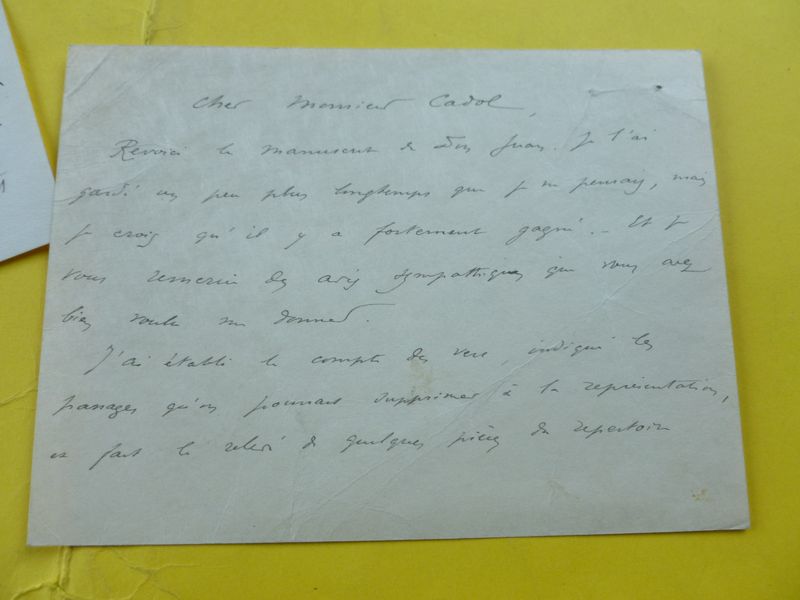 Cher Monsieur Cadol,
Revoici le manuscrit de Don Juan. Je l'ai
gardé un peu plus longtemps que je ne pensais, mais
je crois qu'il y a fortement gagné. – Et je
vous remercie des avis sympathiques que vous avez
bien voulu me donner.
J'ai établi le compte des vers, indiqué les
passages qu'on pourrait supprimer à la représentation,
et fait le relevé de quelques pièces du repertoire